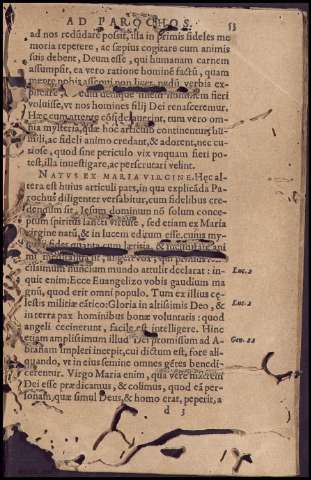 AD PAROCHOS. 53
ad nos redũdare possit, illa in primis fideles me
moria repetere, ac sæpius cogitare cum animis
suis debent, Deum esse, qui humanam carnem
assumpsit, ea vero ratione hominẽ factũ, quam
mente nobis assequi non licet, nedũ verbis ex-
voluisse, vt nos homines filij Dei renasceremur.
Hæc cum attente cõsiderauerint, tum vero om-
nia mysteria, quæ hoc articulo continentur, hu
mili, ac fideli animo credant, & adorent, nec cu
riose, quod sine periculo vix vnquam fieri po-
test, illa inuestigare, ac perscrutari velint.
NATVS EX MARIA VIRGINE. Hęc al-
tera est huius articuli pars, in qua explicãda Pa
rochus diligenter versabitur, cum fidelibus cre
dendum sit, Iesum dominum nõ solum conce-
ptum spiritus sancti virtute, sed etiam ex Maria
virgine natũ, & in lucem editum esse, cuius my-
fides quanta cum lætitia, & ani
angelus vox, qui
cilissimum nuncium mundo attulit declarat: in-
quit enim: Ecce Euangelizo vobis gaudium ma
gnũ, quod erit omni populo. Tum ex illius cę-
lestis militiæ cãtico: Gloria in altissimis Deo, &
in terra pax hominibus bonæ voluntatis: quod
angeli cecinerunt, facile est intelligere. Hinc
etiam amplissimum illud Dei promissum ad A-
brahamum impleri incœpit, cui dictum est, fore ali-
quando, vt in eius semine omnes gẽtes bened
cerentur. Virgo Maria enim, quã vere matrem
Dei esse prædicamus, & colimus, quod eã per-
sonam, quæ simul Deus, & homo erat, peperit, a
d 3
Luc. 2
Luc. 2
Gen. 22